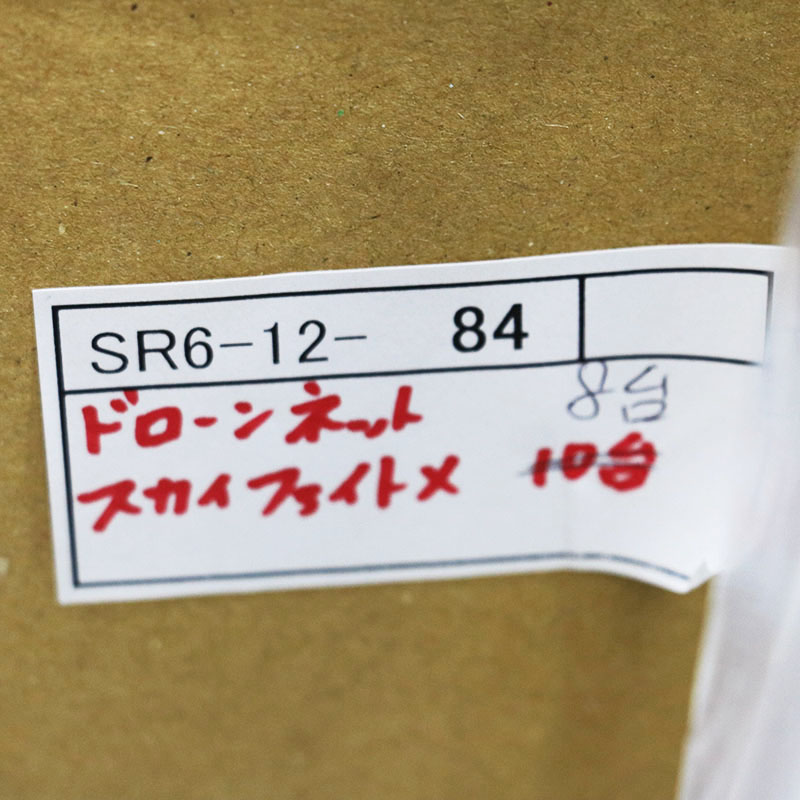 SR6-12- 84
ドローンネット 8台
スカイファイトメ 10台